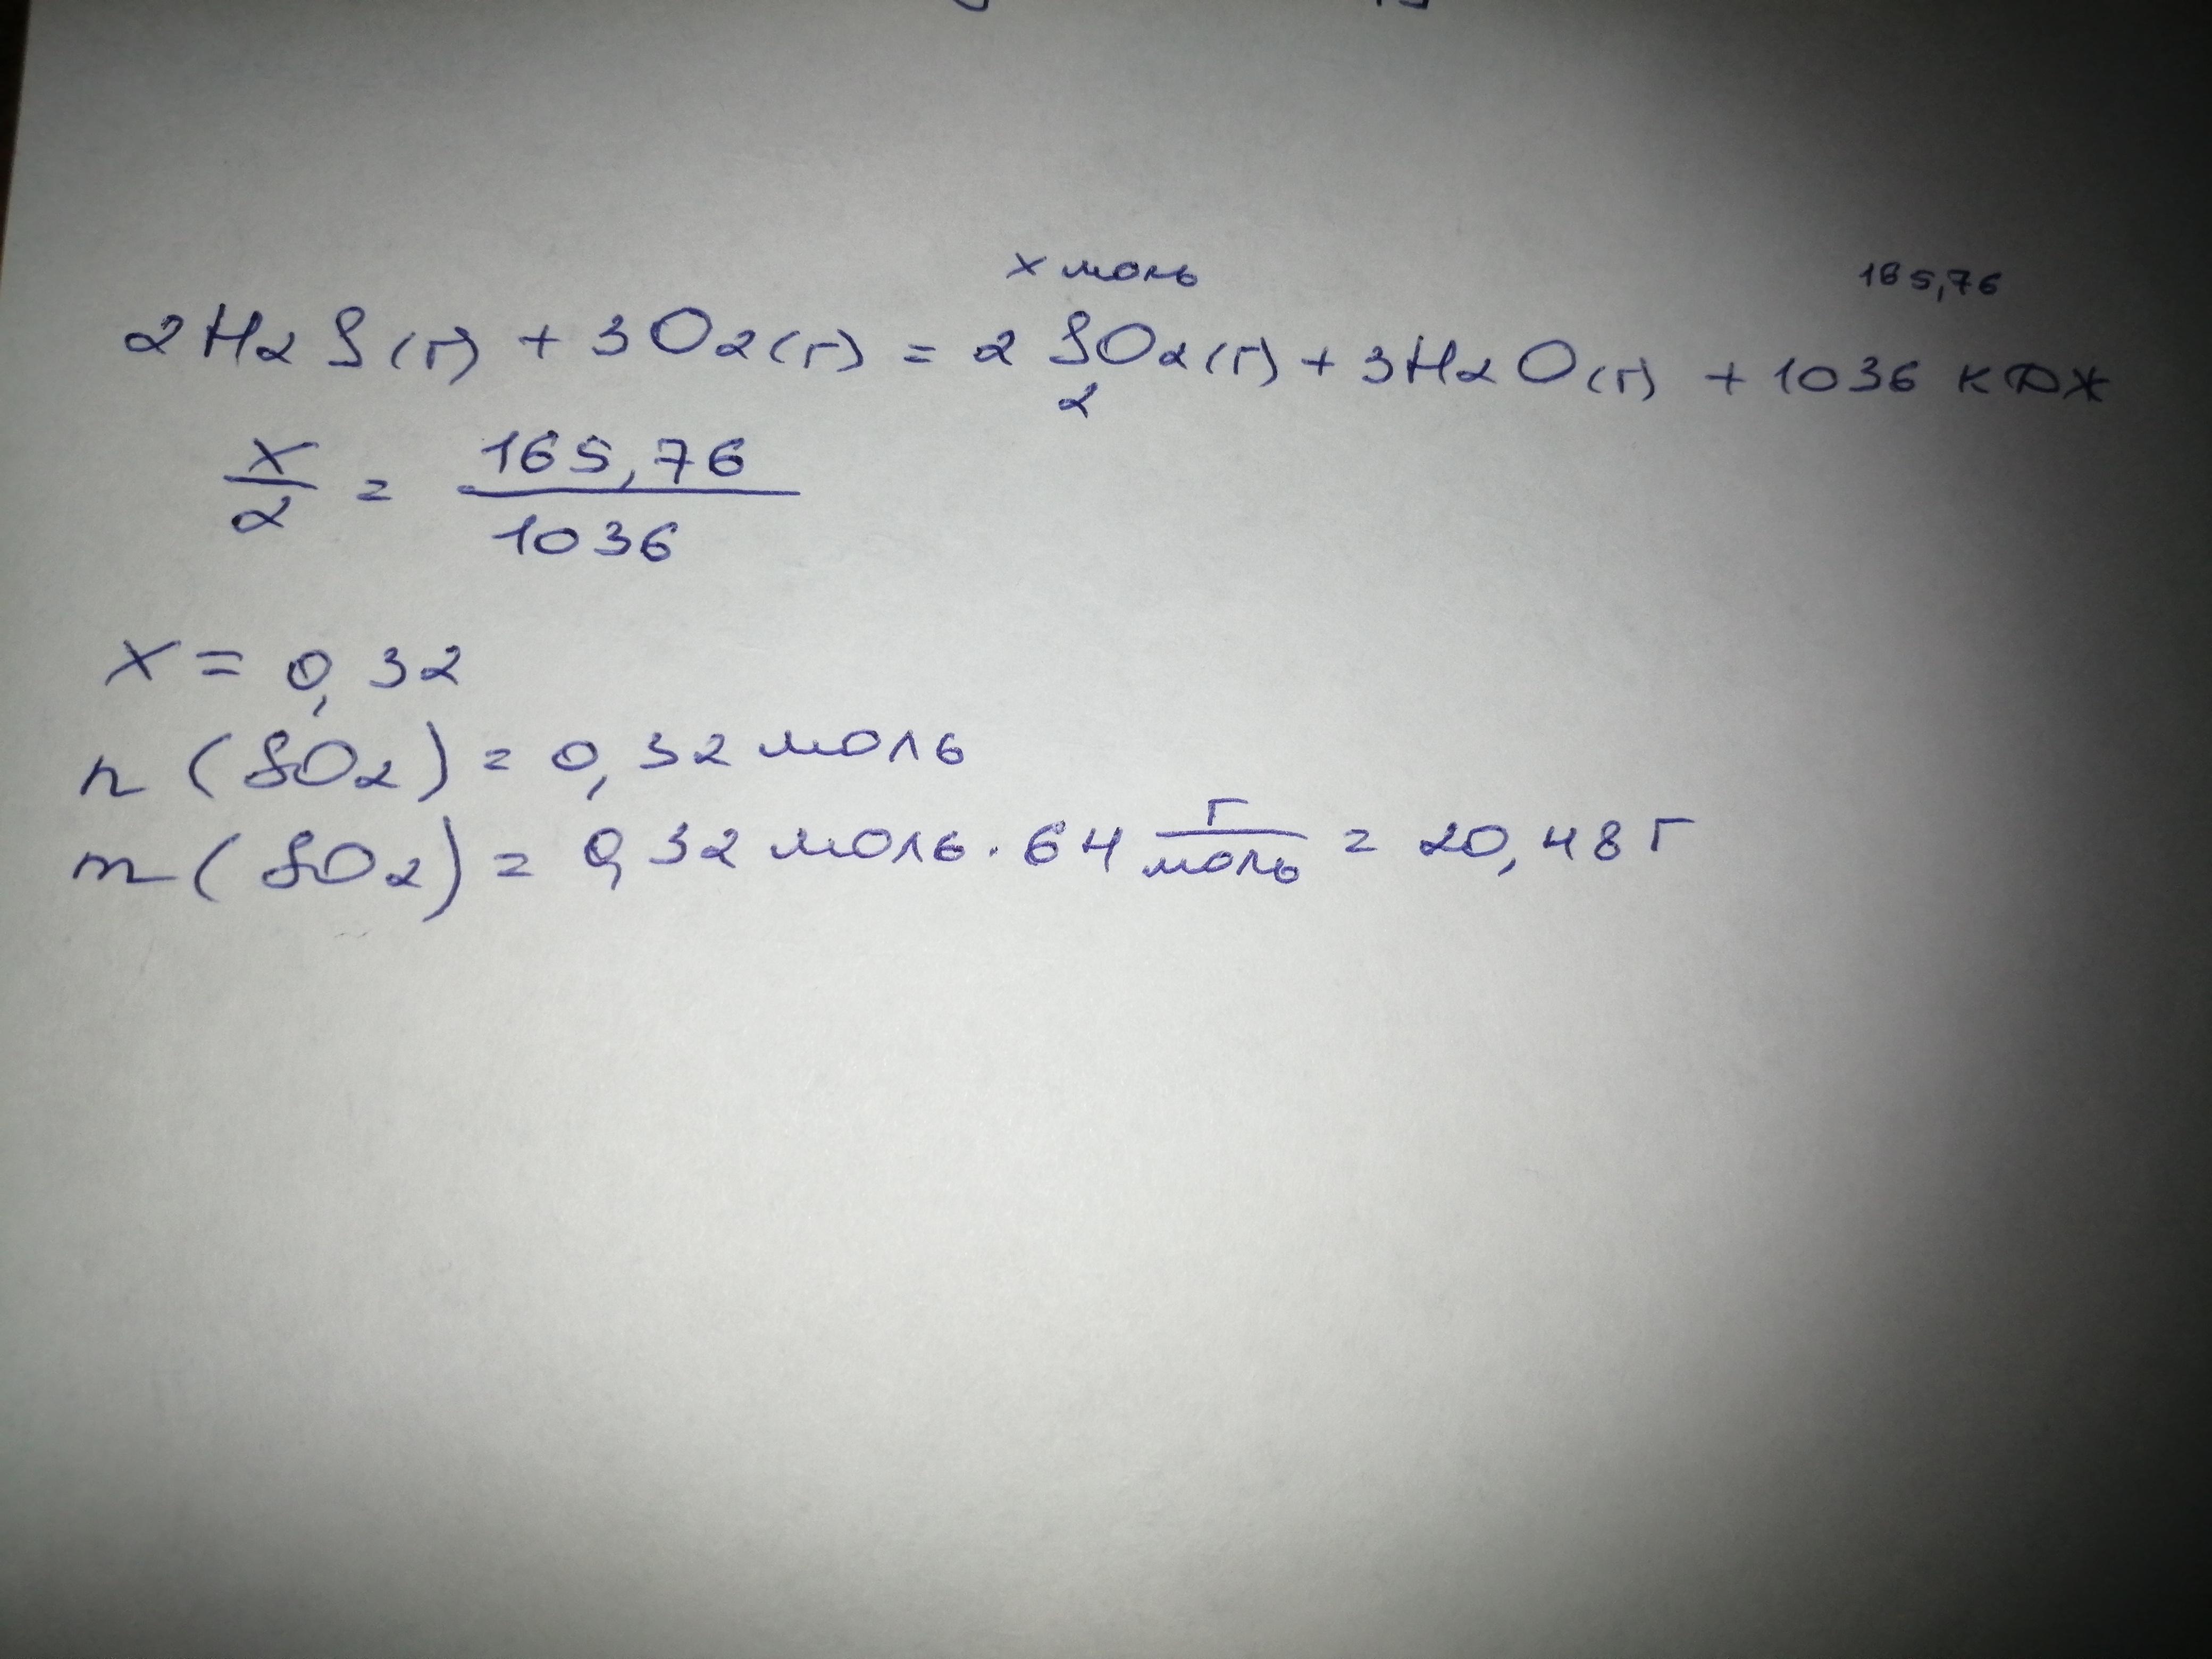 х моль 165,76
2H2S(г) + 3O2(г) = 2SO2(г) + 3H2O(г) + 1036 кДж
2
x/2 = 165,76/1036
x = 0,32
n(SO2) = 0,32 моль
m(SO2) = 0,32 моль · 64 г/моль = 20,48 г